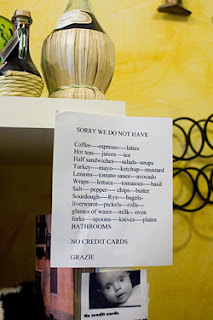 SORRY WE DO NOT HAVE
Coffee----espresso----lattes
Hot teas----juices----ice
Half sandwiches----salads-soups
Turkey----mayo----ketchup---mustard
Lemons----tomato sauce--avocado
Wraps---lettuce----tomatoes----basil
Salt----pepper---- chips---butter
Sourdough----Rye----bagels-
liverwurst---pickels---rolls----
glasses of water----milk-- oven
forks----spoons----knives----plates
BATHROOMS
NO CREDIT CARDS
GRAZIE
No credit cards